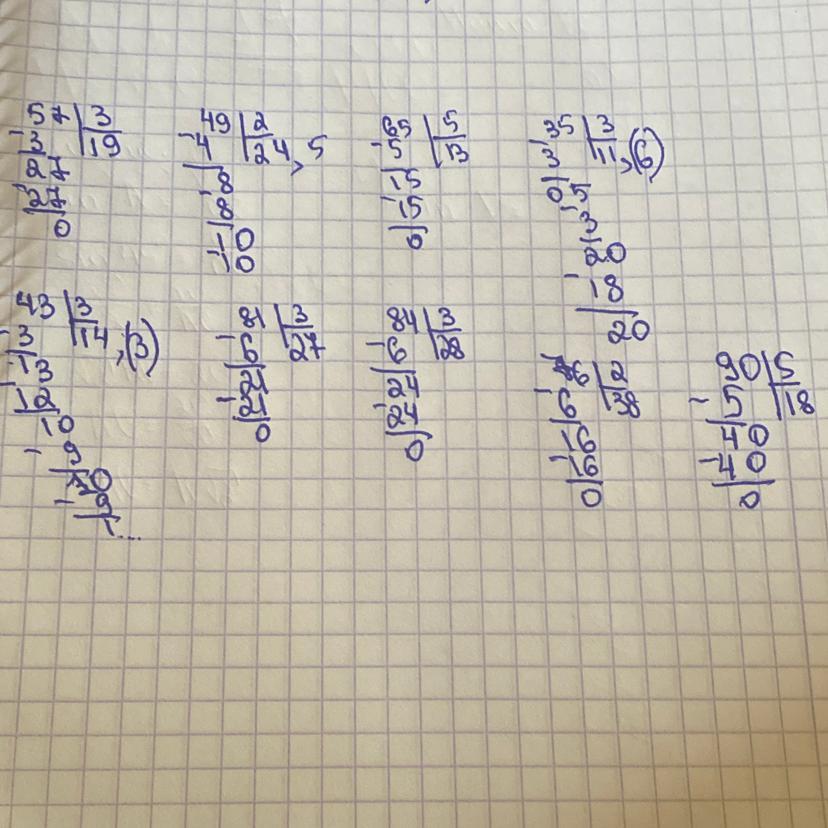 57 3 49 2 65 5 35 3
-3 19 -4 24,5 -5 13 -3 11,(6)
27 -8 15 05
-27 8 -15 -3
0 10 0 20
-10 -18
20
43 3 81 3 84 3
-3 14,(3) -6 27 -6 28
13 21 24 76 2 90 5
-12 -21 -24 -6 38 -5 18
10 0 0 16 40
-9 -16 -40
10 0 0
-9
1...